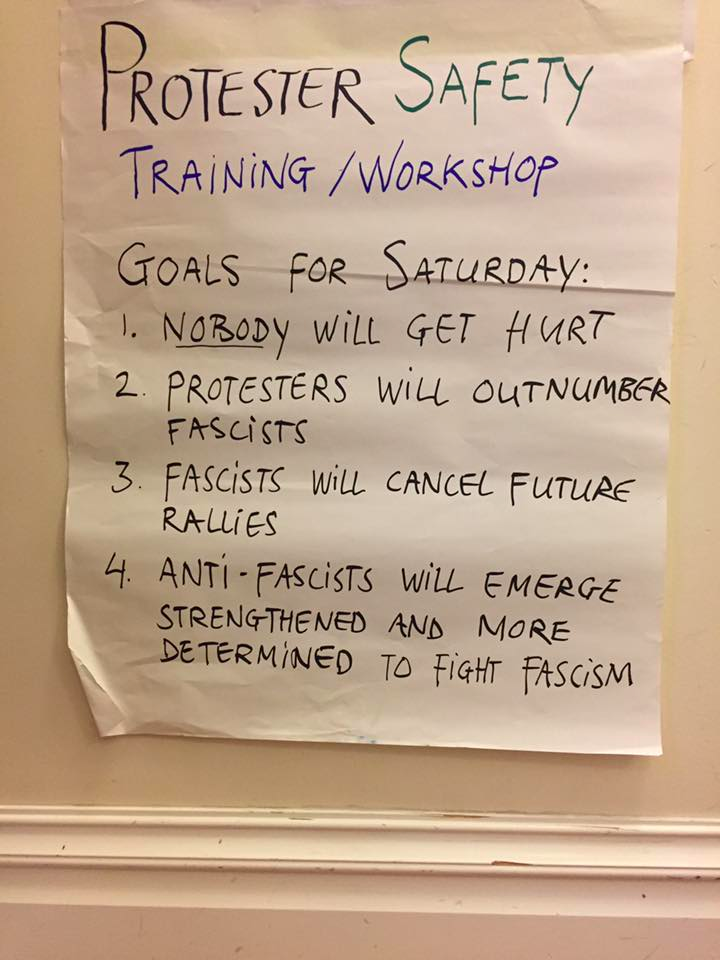 PROTESTER SAFETY
TRAINING / WORKSHOP
GOALS FOR SATURDAY:
1. NOBODY WILL GET HURT
2. PROTESTERS WILL OUTNUMBER
FASCISTS
3. FASCISTS WILL CANCEL FUTURE
RALLIES
4. ANTI-FASCISTS WILL EMERGE
STRENGTHENED AND MORE
DETERMINED TO FIGHT FASCISM